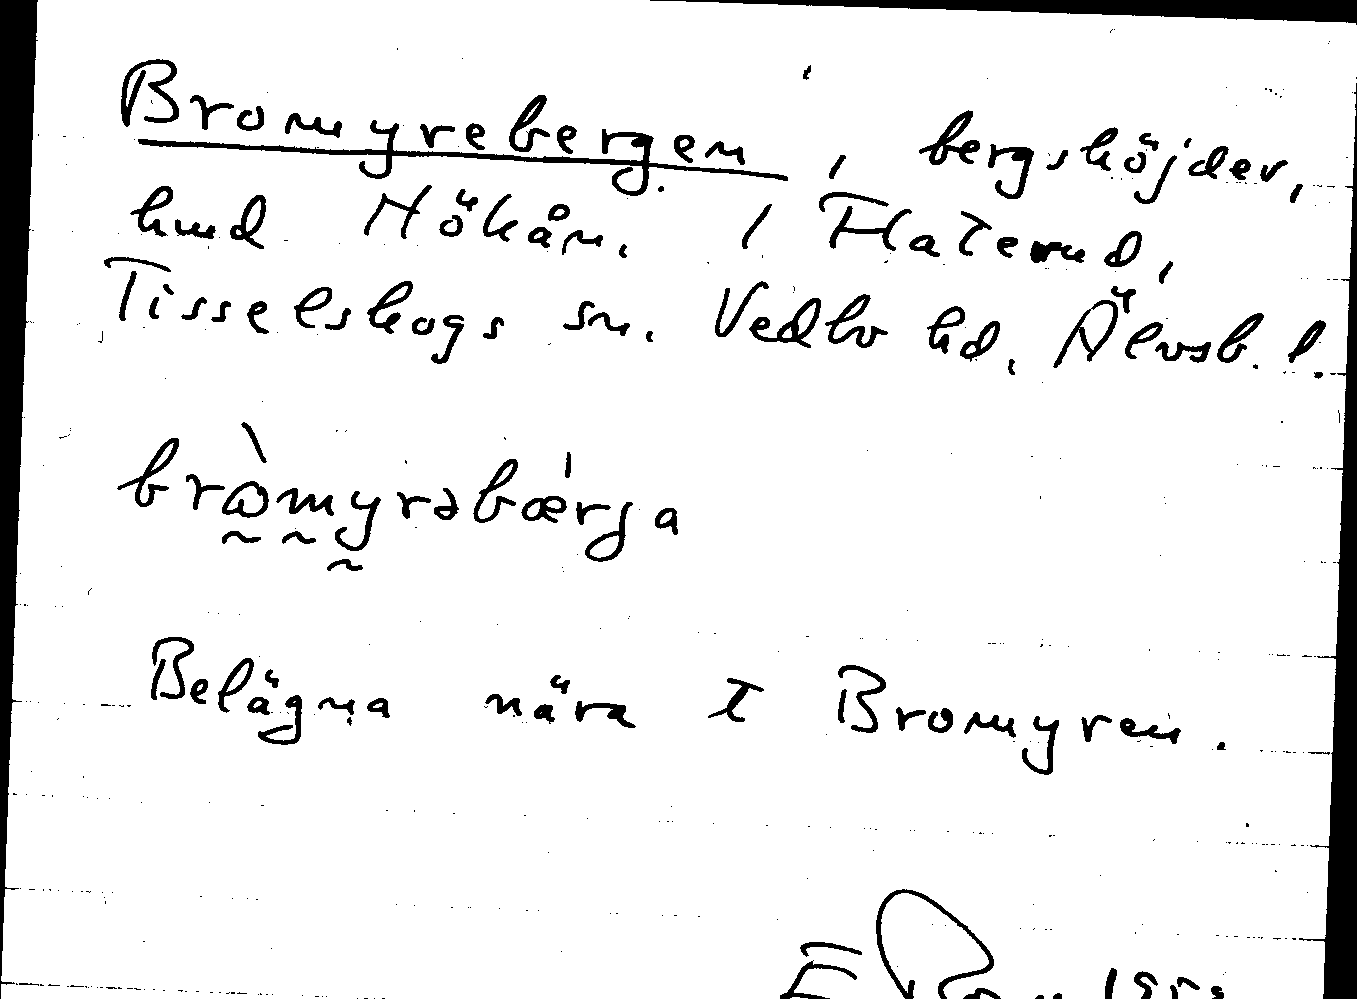 Bromyrebergen, bergshöjder,
hmd Hökån. 1 Flaterud,
Tisselskogs sn. Vedbo hd. Älvsb. l.
bròmyrəbǽrja
Belägna nära t Bromyren.